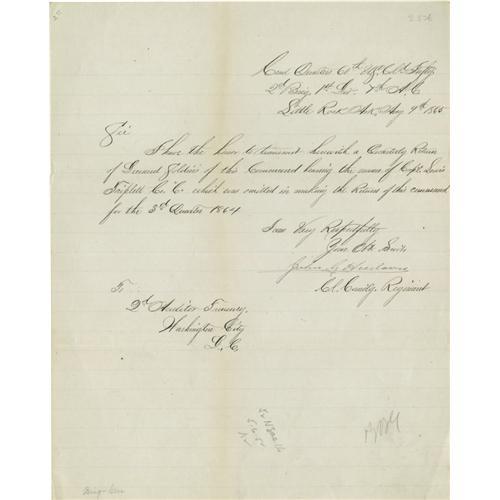 Head Quarters 60th U.S. Cold Infty
2d Brig. 1st Div. 7th A.C.
Little Rock Ark. Aug 9th 1865
Sir
I have the honor to transmit herewith a Quarterly Return
of Deceased Soldiers of this Command bearing the name of Corpl. Lewis
Triplett Co. C. which was omitted in making the Return of this command
for the 3d Quarter 1864
I am Very Respectfully
Your Obt. Servt.
John G. Hudson
Col. Comdg. Regiment
To
2d Auditor Treasury.
Washington City
D.C.